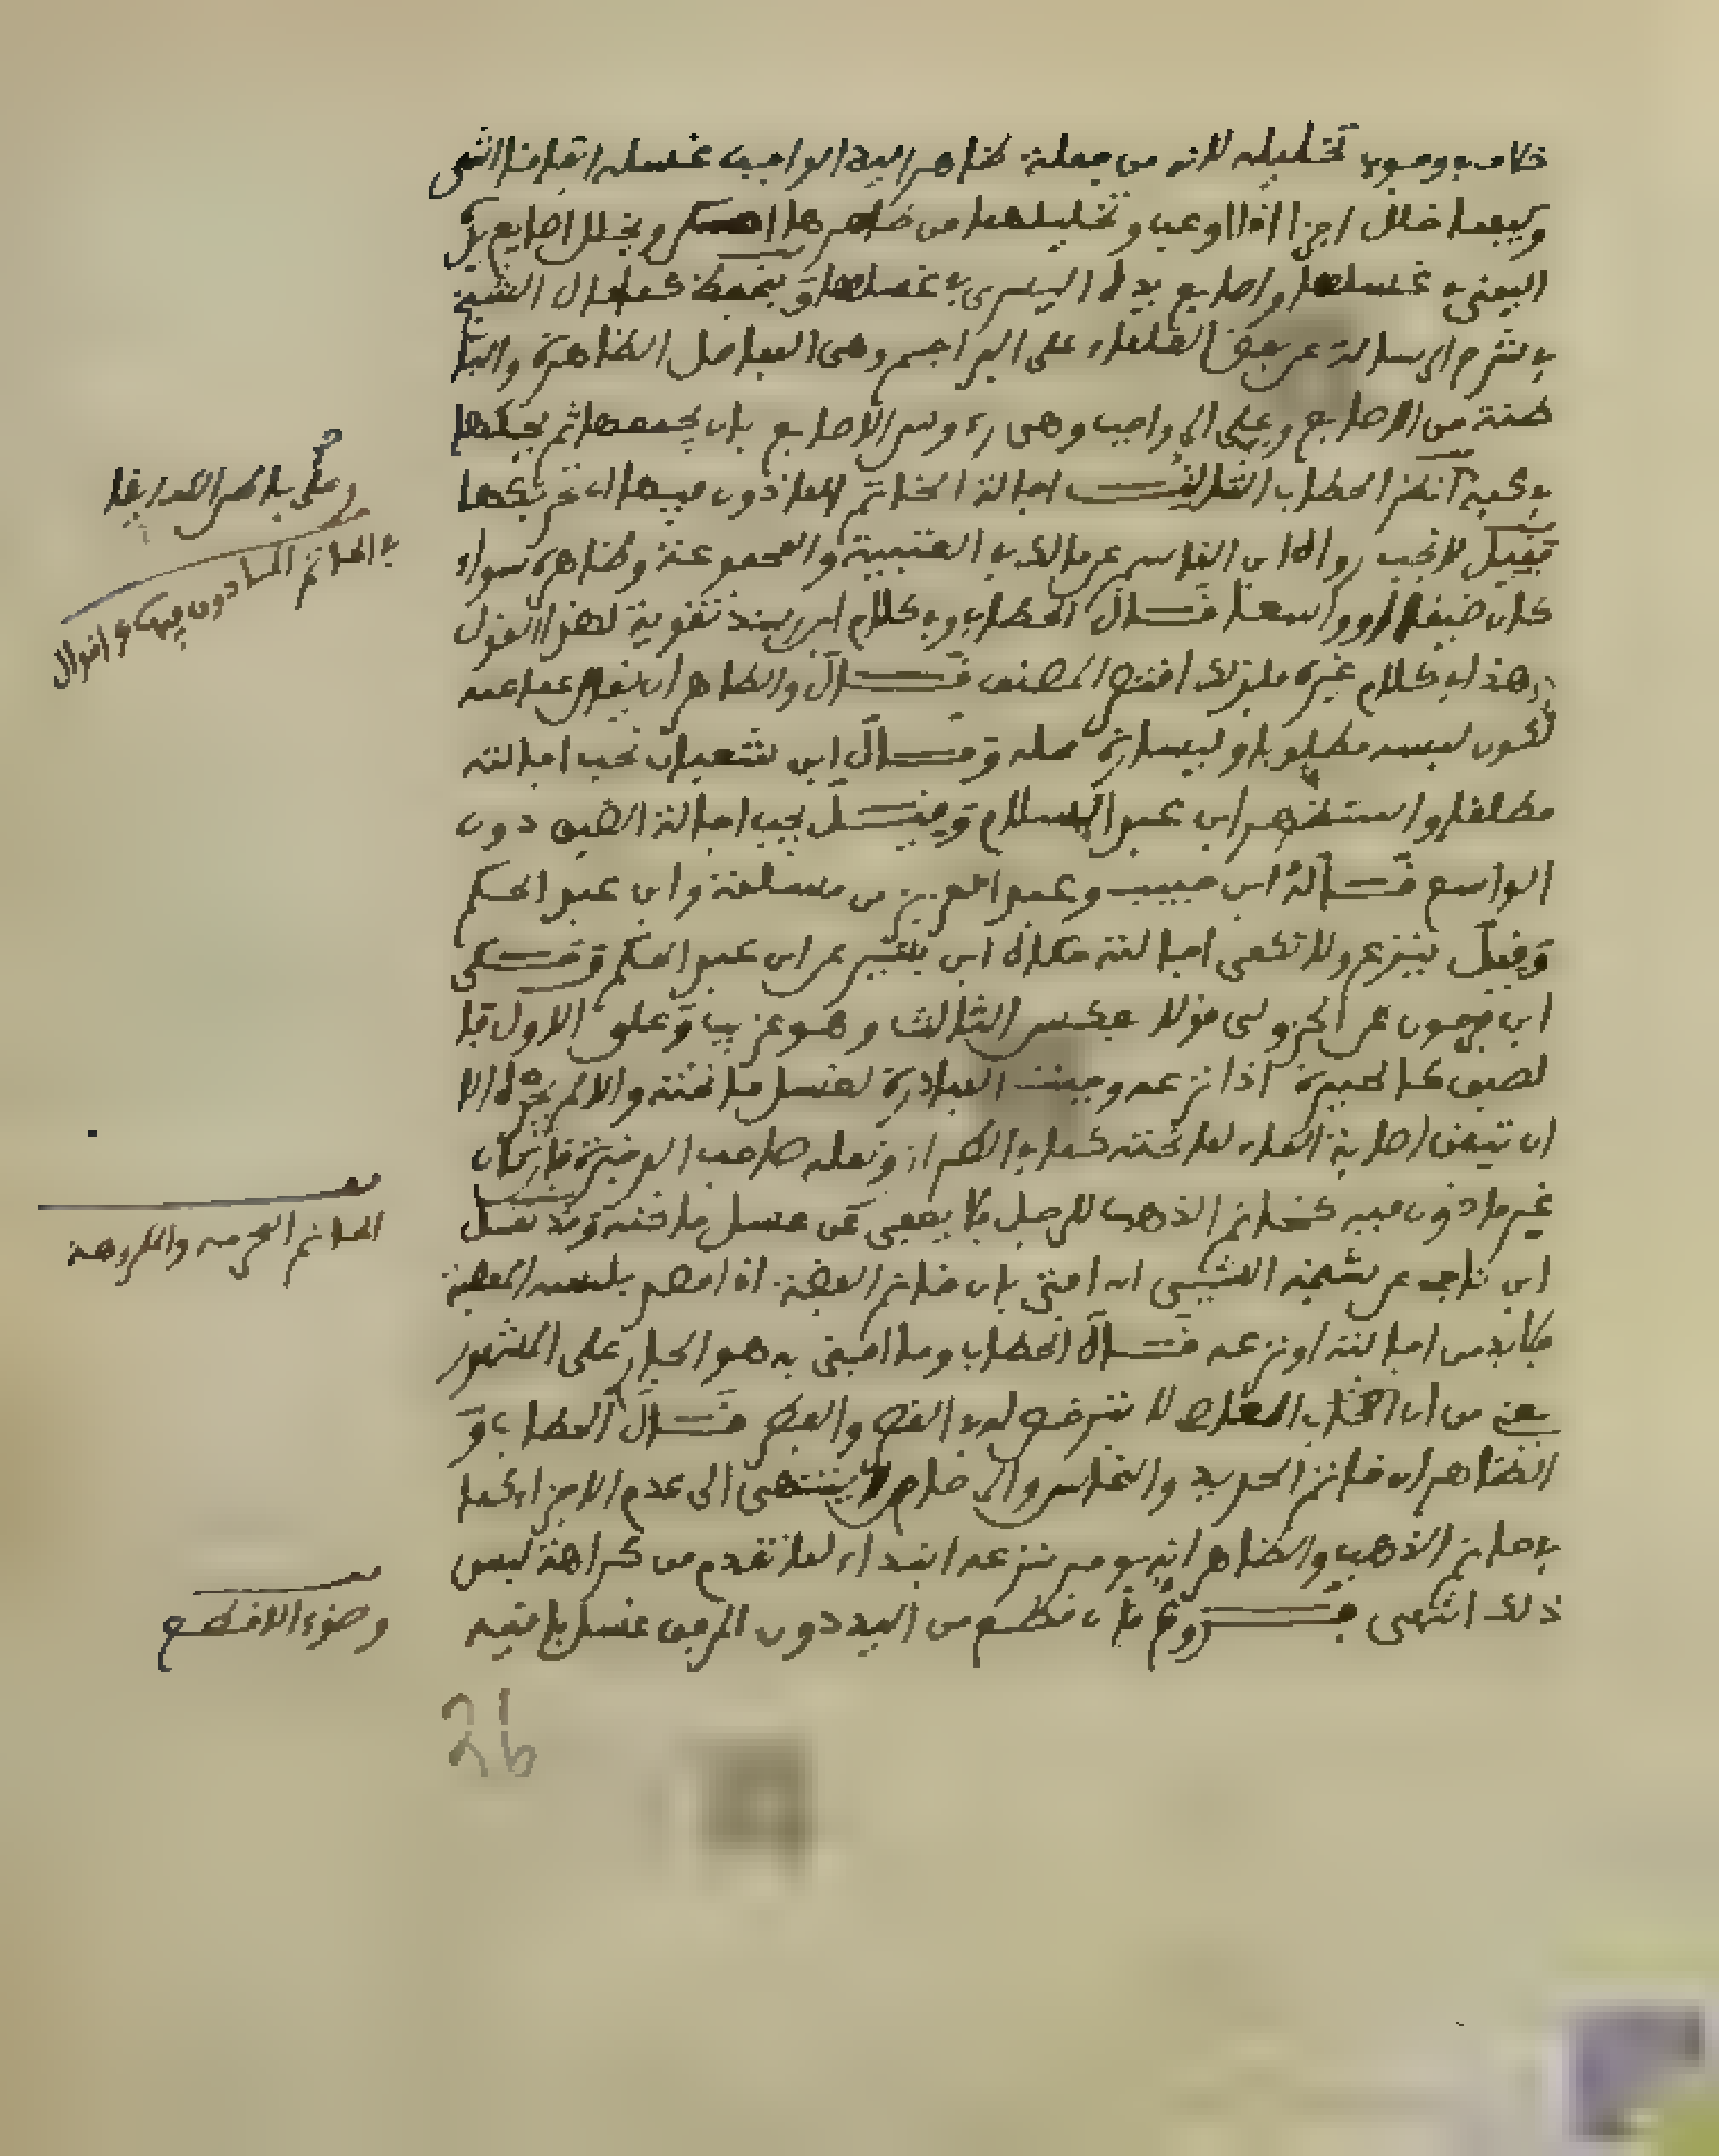 خلاف في وجوب تخليله لانه من جملة ظاهر اليد الواجب غسله اتفاقا انتهى
وكيفما خلل اجزأ او اوعب وتخليلهما من ظاهرها ويخلل اصابع يد
اليمنى في غسلها واصابع يده اليسرى في غسلها ويحفظ كما قال الشيخ
في شرح الرسالة عن بعض العلماء على البراجم وهي المفاصل الظاهرة والبا
طنة من الاصابع وعلى الرواجب وهي رءوس الاصابع بان يجمعها ثم يحكها
في كفه انظر الحطاب الثالث اجالة الخاتم الماذون فيه اي تحريكها
فقيل لا تجب رواه ابن القاسم عن مالك في العتبية والمجموعة وظاهره سواء
كان ضيقا او واسعا قال الحطاب وفي كلام ابن رشد تقوية لهذا القول
وهذا في كلام غيره فلذلك اقتصر المصنف قال والظاهر ان يقال
لكون لبسه مطلوبا وليسارة محله وقال ابن شعبان تجب اجالته
مطلقا واستظهر ابن عبد السلام وقيل يجب اجالة الضيق دون
الواسع قاله ابن حبيب وعبد العزيز بن مسلمة وابن عبد الحكم
وقيل ينزع ولا تكفي اجالته حكاه ابن بشير عن ابن عبد الحكم وحكى
ابن فرحون عن الجزولي قولا عكس الثالث وهو غريب وعلى الاول فا
لصق كالجبيرة اذا نزعه وجبت المبادرة لغسل ما تحته والا لم يجزه الا
ان تيقن اصابة الماء لما تحته كما في الطراز ونقله صاحب الذخيرة فان كان
غير ماذون فيه كخاتم الذهب للرجل فلا يعفى عن غسل ما تحته وقد نقل
ابن ناجي عن شيخه الشبيبي انه افتى بان خاتم الفضة اذا قصد بلبسه المعصية
فلا بد من اجالته او نزعه قال الحطاب وما افتى به هو الجار على المشهور
يعني من ان العاصي لا يترخص له في القصر والفطر قال الحطاب و
الظاهر ان خاتم الحديد والنحاس والرصاص لا ينتهي الى عدم الاجزاء كما
في خاتم الذهب والظاهر انه يومر بنزعه ابتداء لما تقدم من كراهة لبس
ذلك انتهى فروع فان قطع من اليد دون المرفق غسل باقيه
في الخاتم الماذون فيه اقوال
الخاتم المحرمة والمكروهة
وضوء الاقطع
26